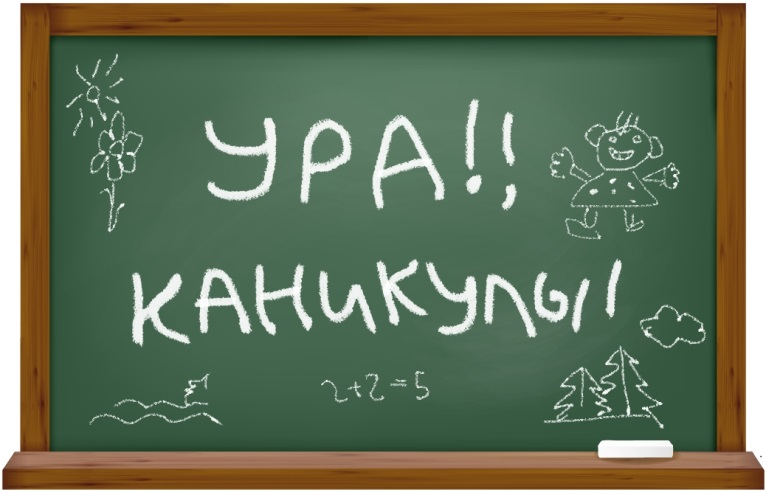 УРА!!
КАНИКУЛЫ!
2+2=5